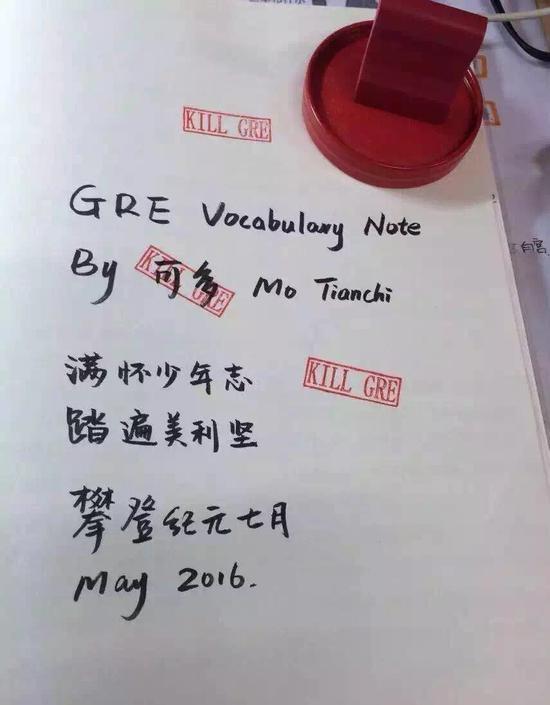 KILL GRE
GRE Vocabulary Note
By 可多 Mo Tianchi
KILL GRE
满怀少年志
KILL GRE
踏遍美利坚
攀登纪元七月
May 2016.